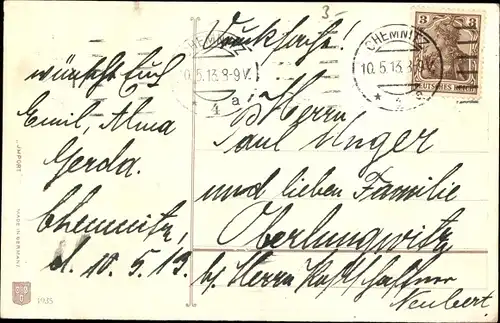 3-
Drucksache!
wünscht Euch
Emil, Alma
Gerda.
Chemnitz,
d. 10.5.13.
Herrn
Paul Unger
und lieben Familie
Oberlungwitz
by Herrn
Neubert
CHEMNITZ
10.5.13. 8-9V.
4
a
CHEMNITZ
10.5.13. 8-9V.
3
3
DEUTSCHES REICH
IMPORT
MADE IN GERMANY
1935